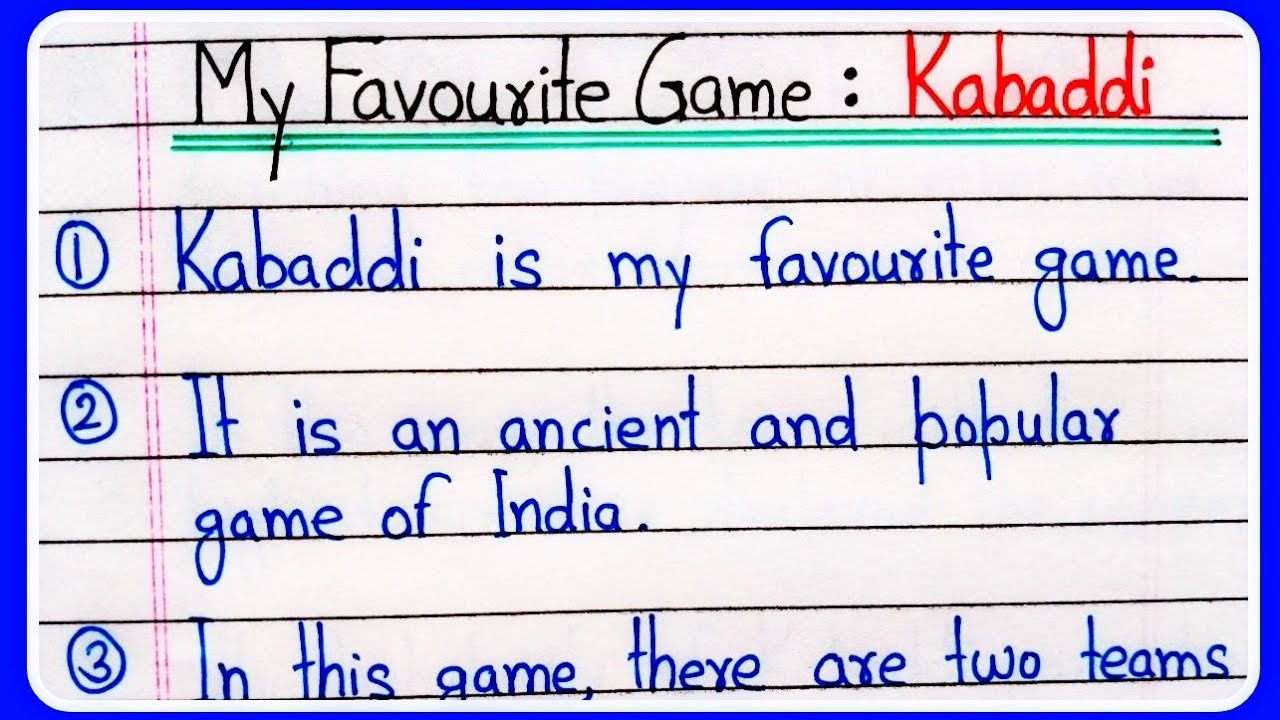 My Favourite Game : Kabaddi
① Kabaddi is my favourite game.
② It is an ancient and popular
game of India.
③ In this game, there are two teams